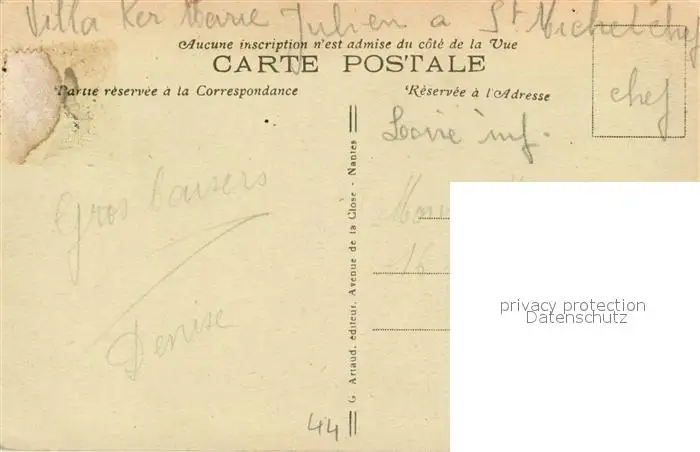 Villa Ker Marie Julien a St Micherchef
Aucune inscription n'est admise du côté de la Vue
CARTE POSTALE
Partie réservée à la Correspondance
Réservée à l'Adresse
chef
Loire inf.
Gros baisers
Denise
G. Artaud, éditeur, Avenue de la Close - Nantes
16
44
privacy protection
Datenschutz